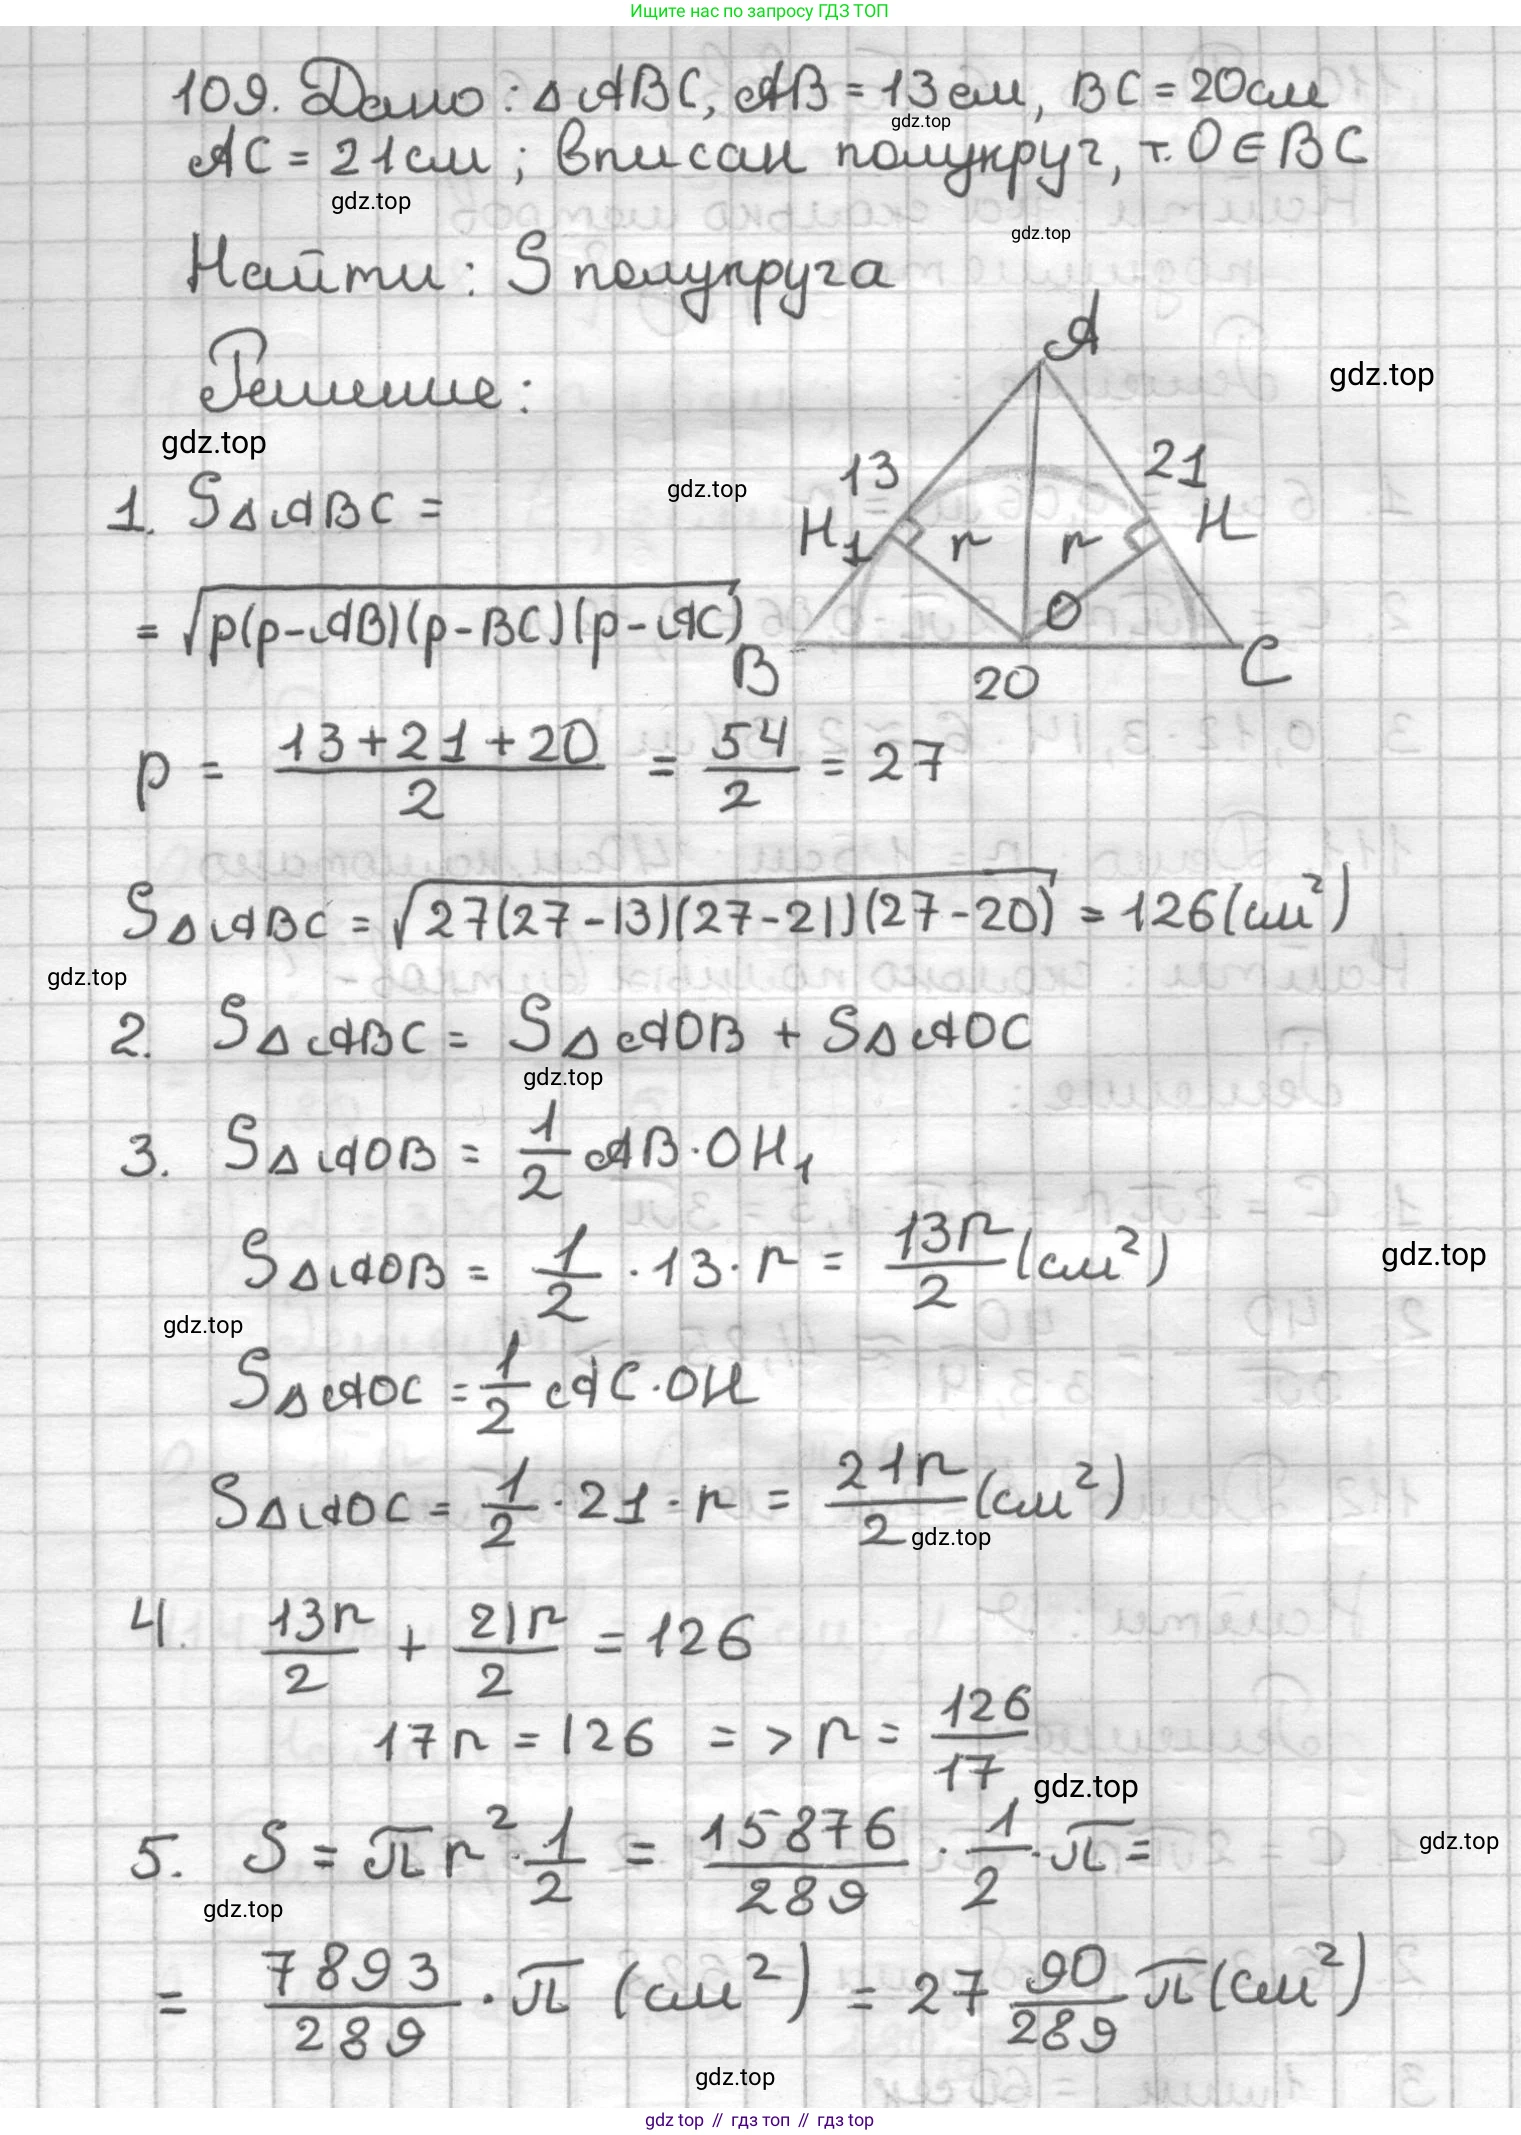 Ищите нас по запросу ГДЗ ТОП
109. Дано: △ABC, AB = 13 см, BC = 20 см
gdz.top
AC = 21 см; вписан полукруг, т. O ∈ BC
gdz.top
gdz.top
Найти: S полукруга
A
Решение:
gdz.top
gdz.top
13
21
gdz.top
1. S△ABC =
H₁
r
r
H
O
= √p(p-AB)(p-BC)(p-AC)
B
20
C
p = (13+21+20)/2 = 54/2 = 27
S△ABC = √27(27-13)(27-21)(27-20) = 126 (см²)
gdz.top
2. S△ABC = S△AOB + S△AOC
gdz.top
3. S△AOB = 1/2 AB·OH₁
S△AOB = 1/2 · 13 · r = 13r/2 (см²)
gdz.top
gdz.top
S△AOC = 1/2 AC·OH
S△AOC = 1/2 · 21 · r = 21r/2 (см²)
gdz.top
4. 13r/2 + 21r/2 = 126
17r = 126 => r = 126/17
gdz.top
5. S = πr² · 1/2 = 15876/289 · 1/2 · π =
gdz.top
gdz.top
= 7893/289 · π (см²) = 27 90/289 π (см²)
gdz.top
gdz top // гдз топ // гдз top